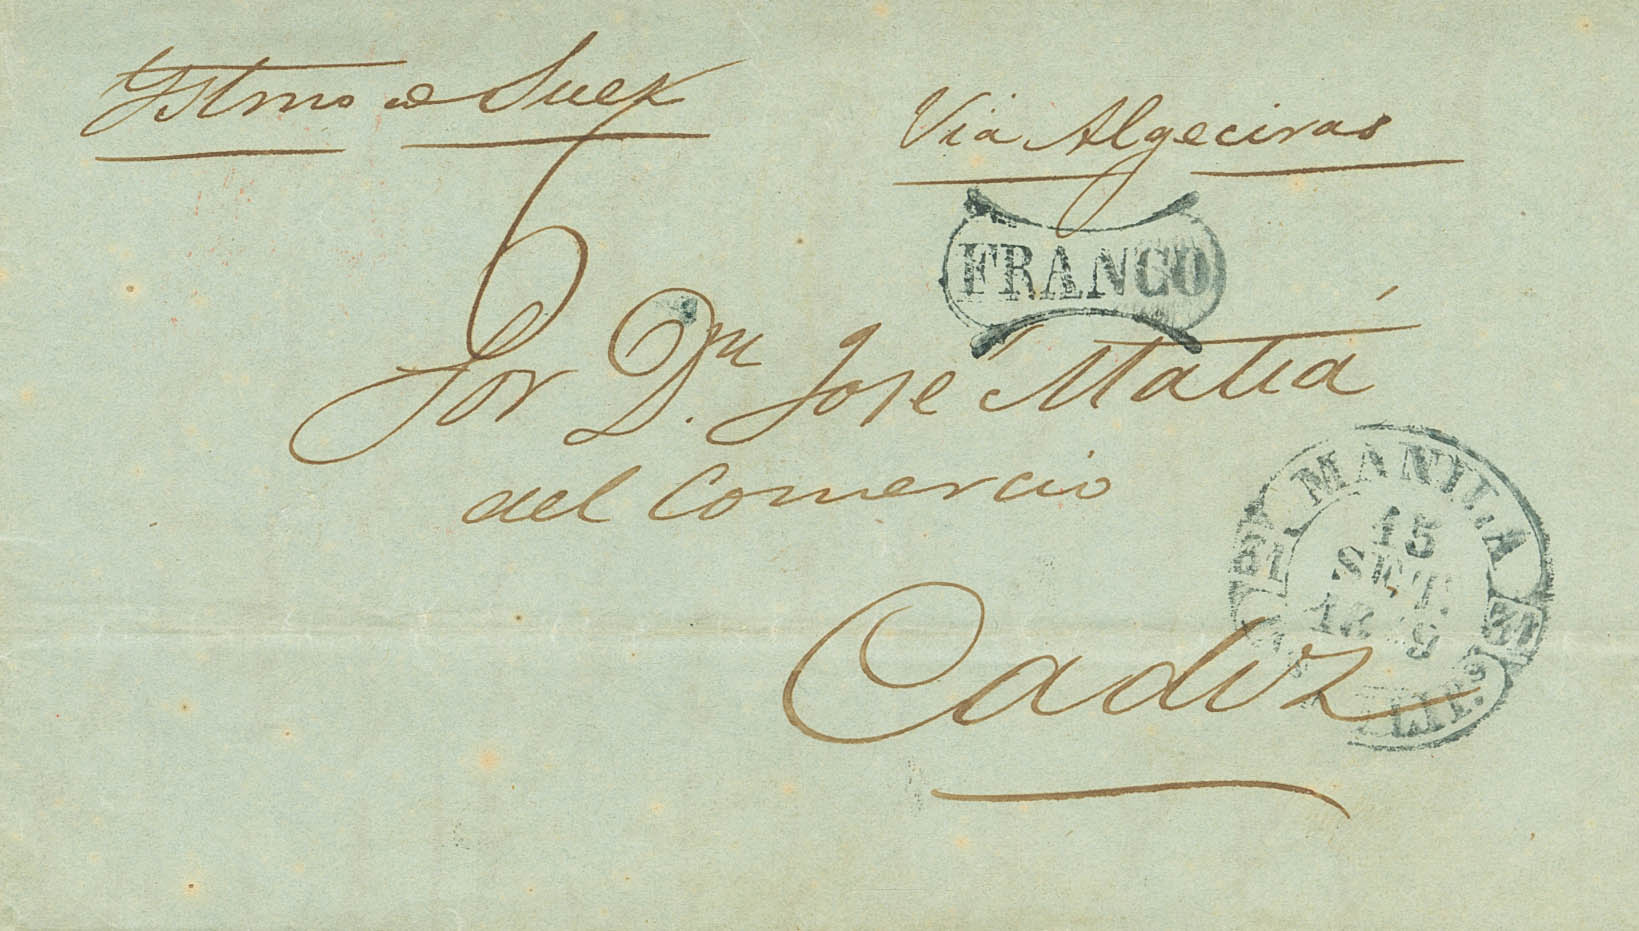 Ystmo de Suez
Via Algeciras
6
FRANCO
Sor Dn. José Matiá
del Comercio
Cadiz
MANILA
15
SET.
31
31